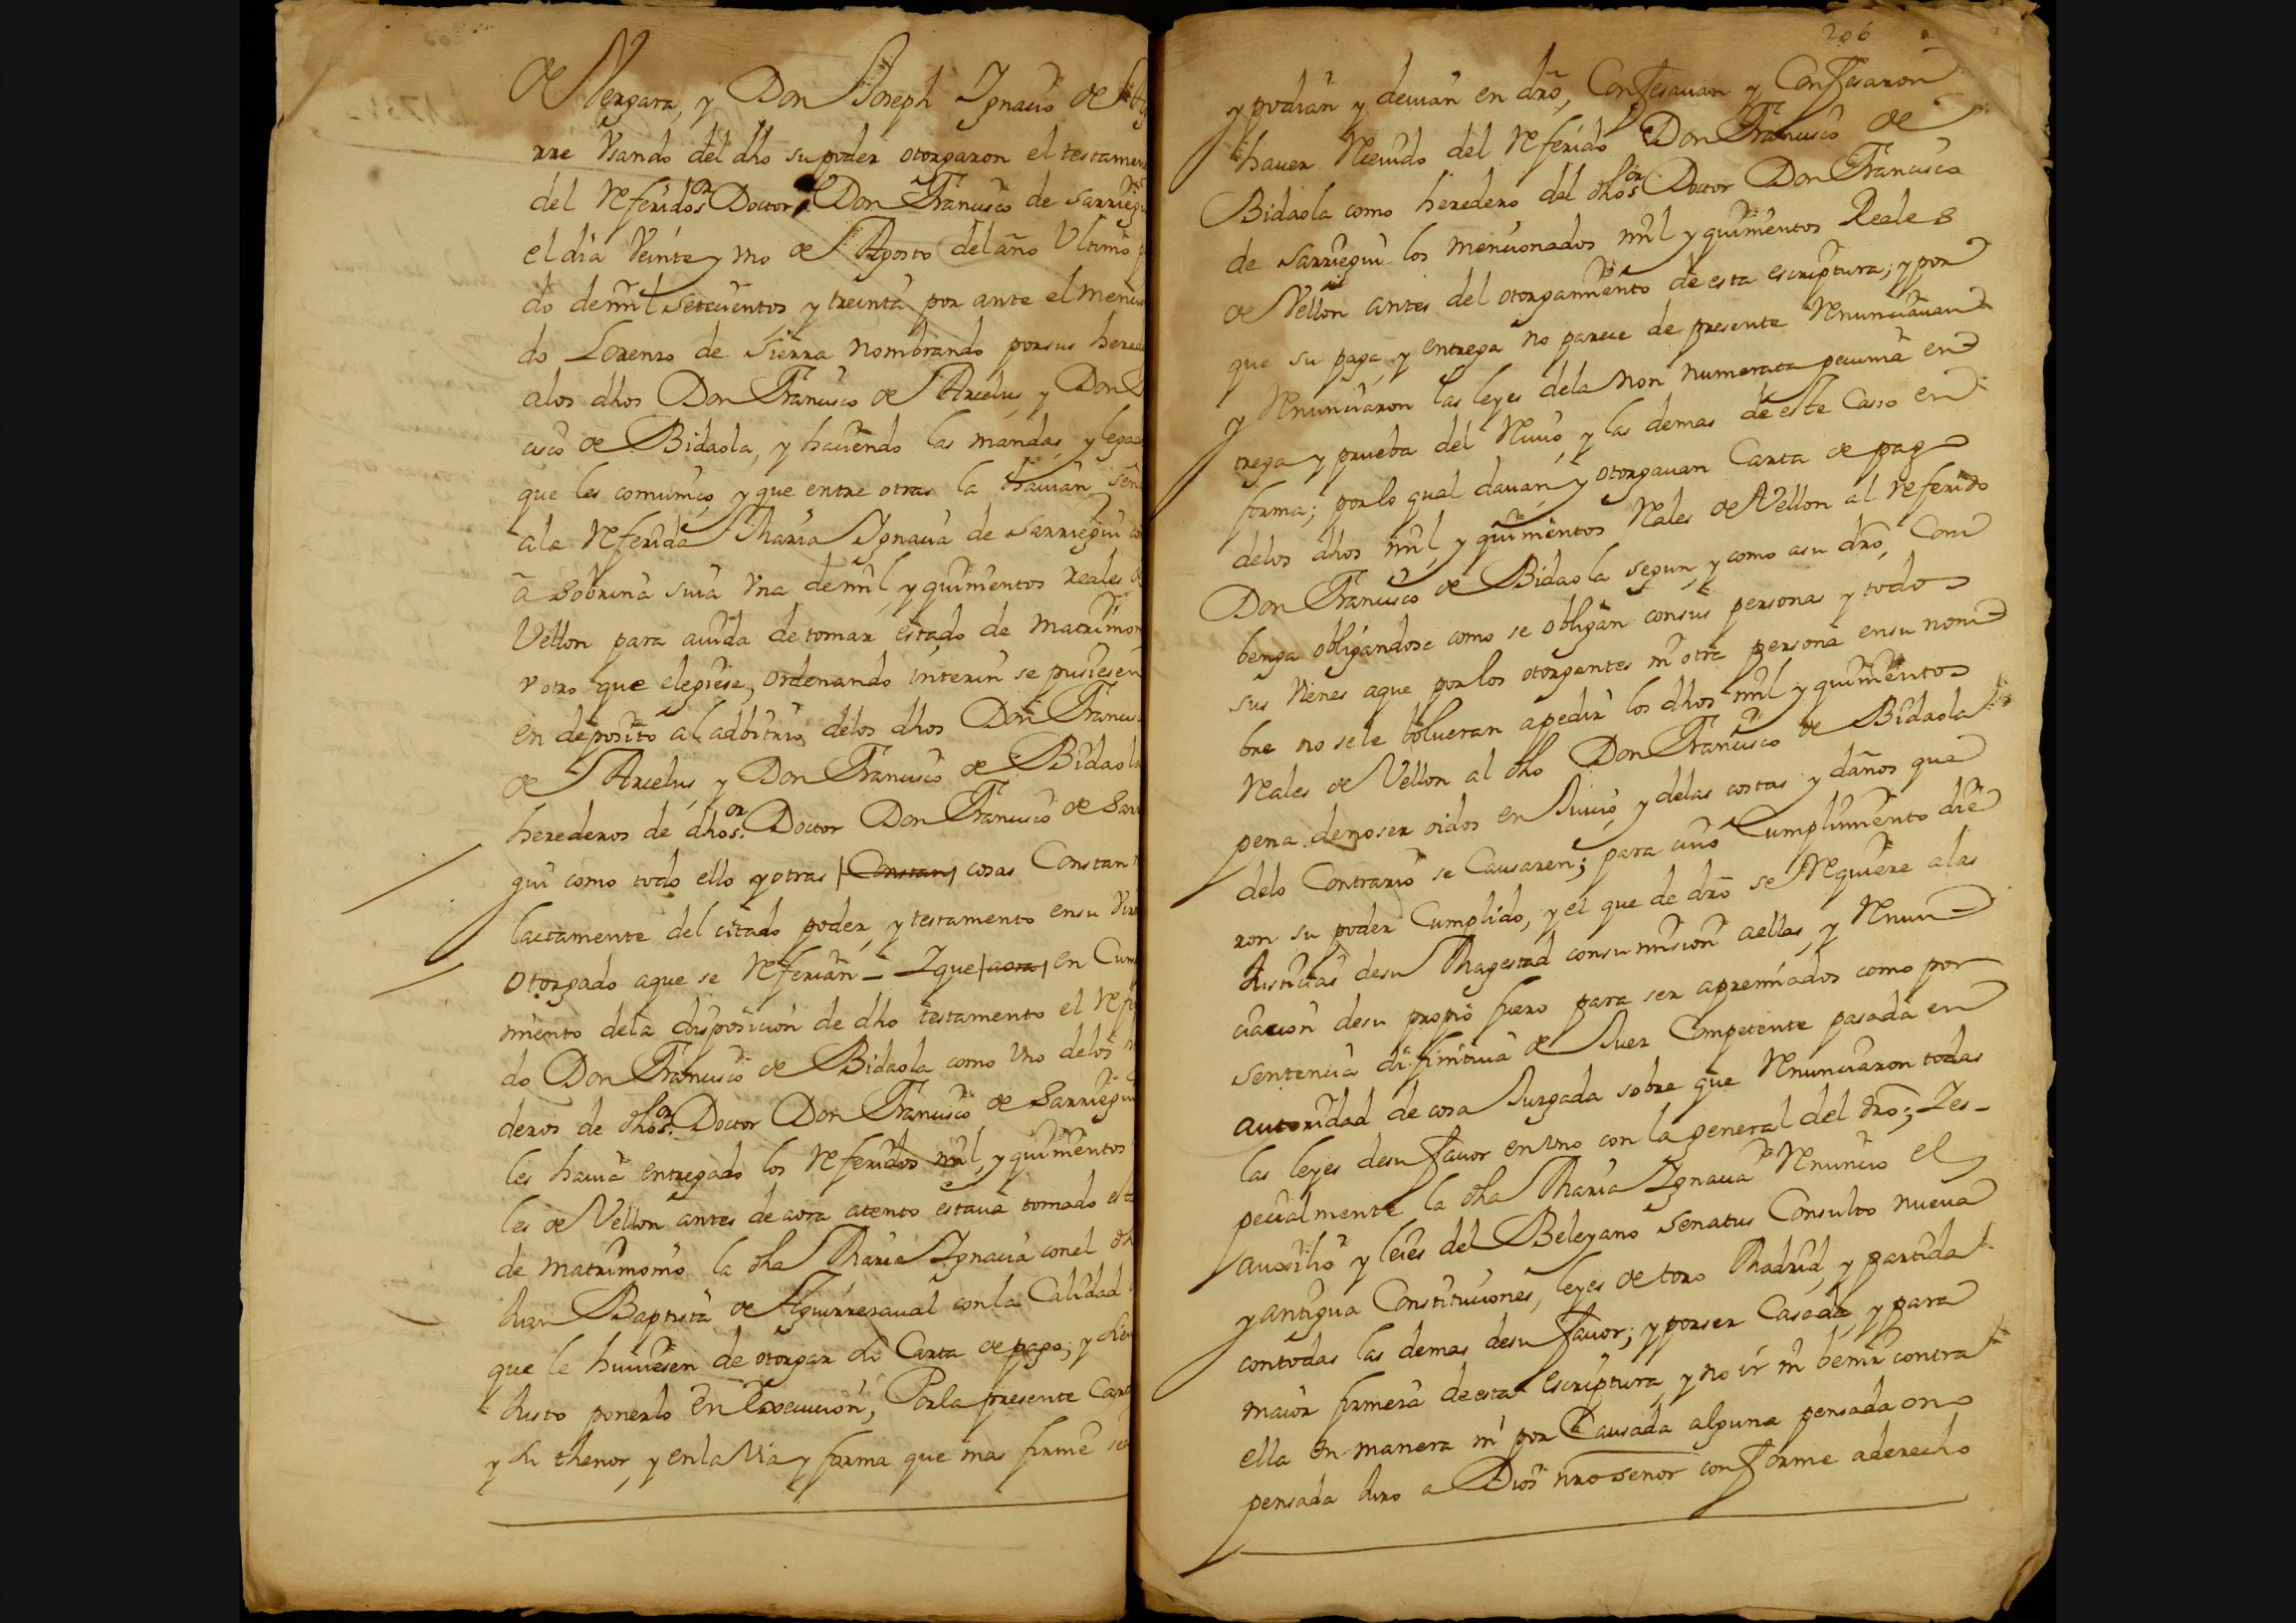 de Vergara, y Don Joseph Ygnacio de
rre Vsando del dho su poder otorgaron el testamen
del Referido sor Doctor Don Francisco de sarriegu
el dia Veinte y vno de Agosto del año Ultimo p
do de mil setecientos y treinta por ante el mencio
do Lorenzo de Sierra nombrando por sus hered
a los dhos Don Francisco de Arcelus, y Don
cisco de Bidaola, y haciendo las mandas, y legad
que les comunico, y que entre otras la hauian señ
a la Referida Maria Ygnacia de Sarriegui co
a sobrina suia vna de mil, y quinientos reales de
Vellon para aiuda de tomar estado de matrimon
v otro que elegiese, ordenando interin se pusiesen
en deposito al adbitrio delos dhos Don Francis
de Arcelus, y Don Francisco de Bidaola
herederos de dho sor. Doctor Don Francisco de Sarr
gui como todo ello y otras Constan cosas Constan
lactamente del citado poder, y testamento en su Virt
otorgado a que se Referian = Y que aora en Cum
miento dela disposicion de dho testamento el Refe
do Don Francisco de Bidaola como vno delos h
deros de dho sor. Doctor Don Francisco de Sarriegui
les hauia entregado los Referidos mil, y quinientos
les de Vellon antes de aora atento estaua tomado esta
de matrimonio la dha Maria Ygnacia con el dh
Juan Baptista de Aguirresaual con la Calidad
que le huuiesen de otorgar su Carta de pago; y sien
Justo ponerlo en Execucion, Por la presente Cart
y su thenor, y en la Via y forma que mas firme sea
206
y podian y deuian en dro, Confesauan y Confesaron
hauer Reciuido del Referido Don Francisco de
Bidaola como heredero del dho sor Doctor Don Francisco
de Sarriegui los mencionados mil y quinientos Reales
de Vellon antes del otorgamiento de esta escriptura; y por
que su paga, y entrega no parece de presente Renunciauan
y Renunciaron las leyes dela non numerata pecunia en
trega y prueba del Reciuo, y las demas de este Caso en
forma; por lo qual dauan, y otorgauan Carta de pago
delos dhos mil, y quinientos Reales de Vellon al referido
Don Francisco de Bidaola segun, y como a su dro, Com
benga obligandose como se obligan con sus personas y todos
sus vienes a que por los otorgantes ni otra persona en su nom
bre no se le bolueran a pedir los dhos mil y quinientos
Reales de Vellon al dho Don Francisco de Bidaola
pena de no ser oidos en Juicio, y delas costas y daños que
delo Contrario se Causaren; para cuio Cumplimiento die
ron su poder Cumplido, y el que de dro se Requiere a las
Justicias de su Magestad con sumision a ellas, y Renun
ciacion de su propio fuero para ser apremiados como por
sentencia difinitiua de Juez Competente pasada en
autoridad de cosa Juzgada sobre que Renunciaron todas
las leyes de su fauor en vno con la general del dro; Y es-
pecialmente la dha Maria Ygnacia Renuncio el
auxilio y leies del Beleyano Senatus Consulto nueua
y antigua Constituciones, leyes de toro Madrid, y partida
con todas las demas de su fauor; y por ser Casada, y para
maior firmeza de esta escriptura, y no ir ni benir contra
ella en manera ni por Causada alguna pensada o no
pensada Juro a Dios nro senor conforme a derecho